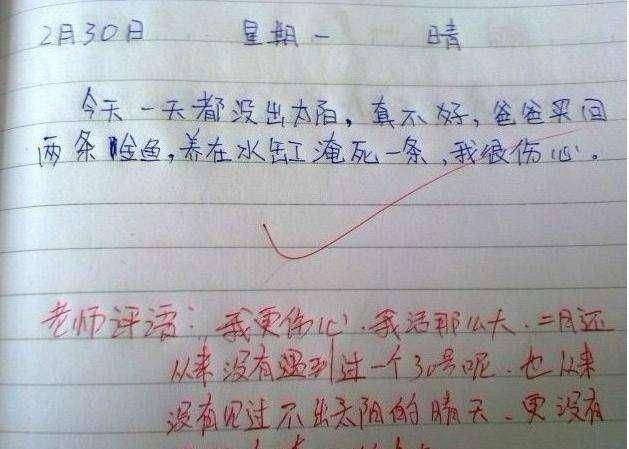 2月30日 星期一 晴
今天一天都没出太阳，真不好，爸爸买回
两条金鱼，养在水缸淹死一条，我很伤心。
老师评语：我更伤心，我活那么大，二月还
从来没有遇到过一个30号呢，也从来
没有见过不出太阳的晴天、更没有